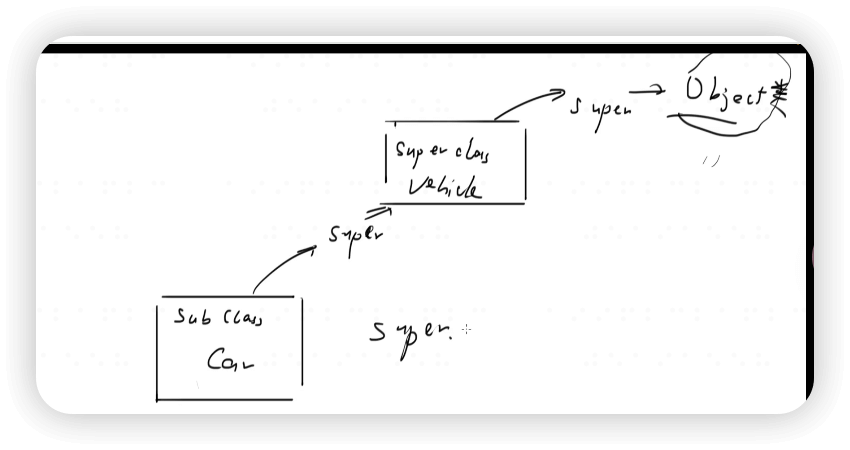 super → Object类
Super class
Vehicle
super
Sub class
Car
super.